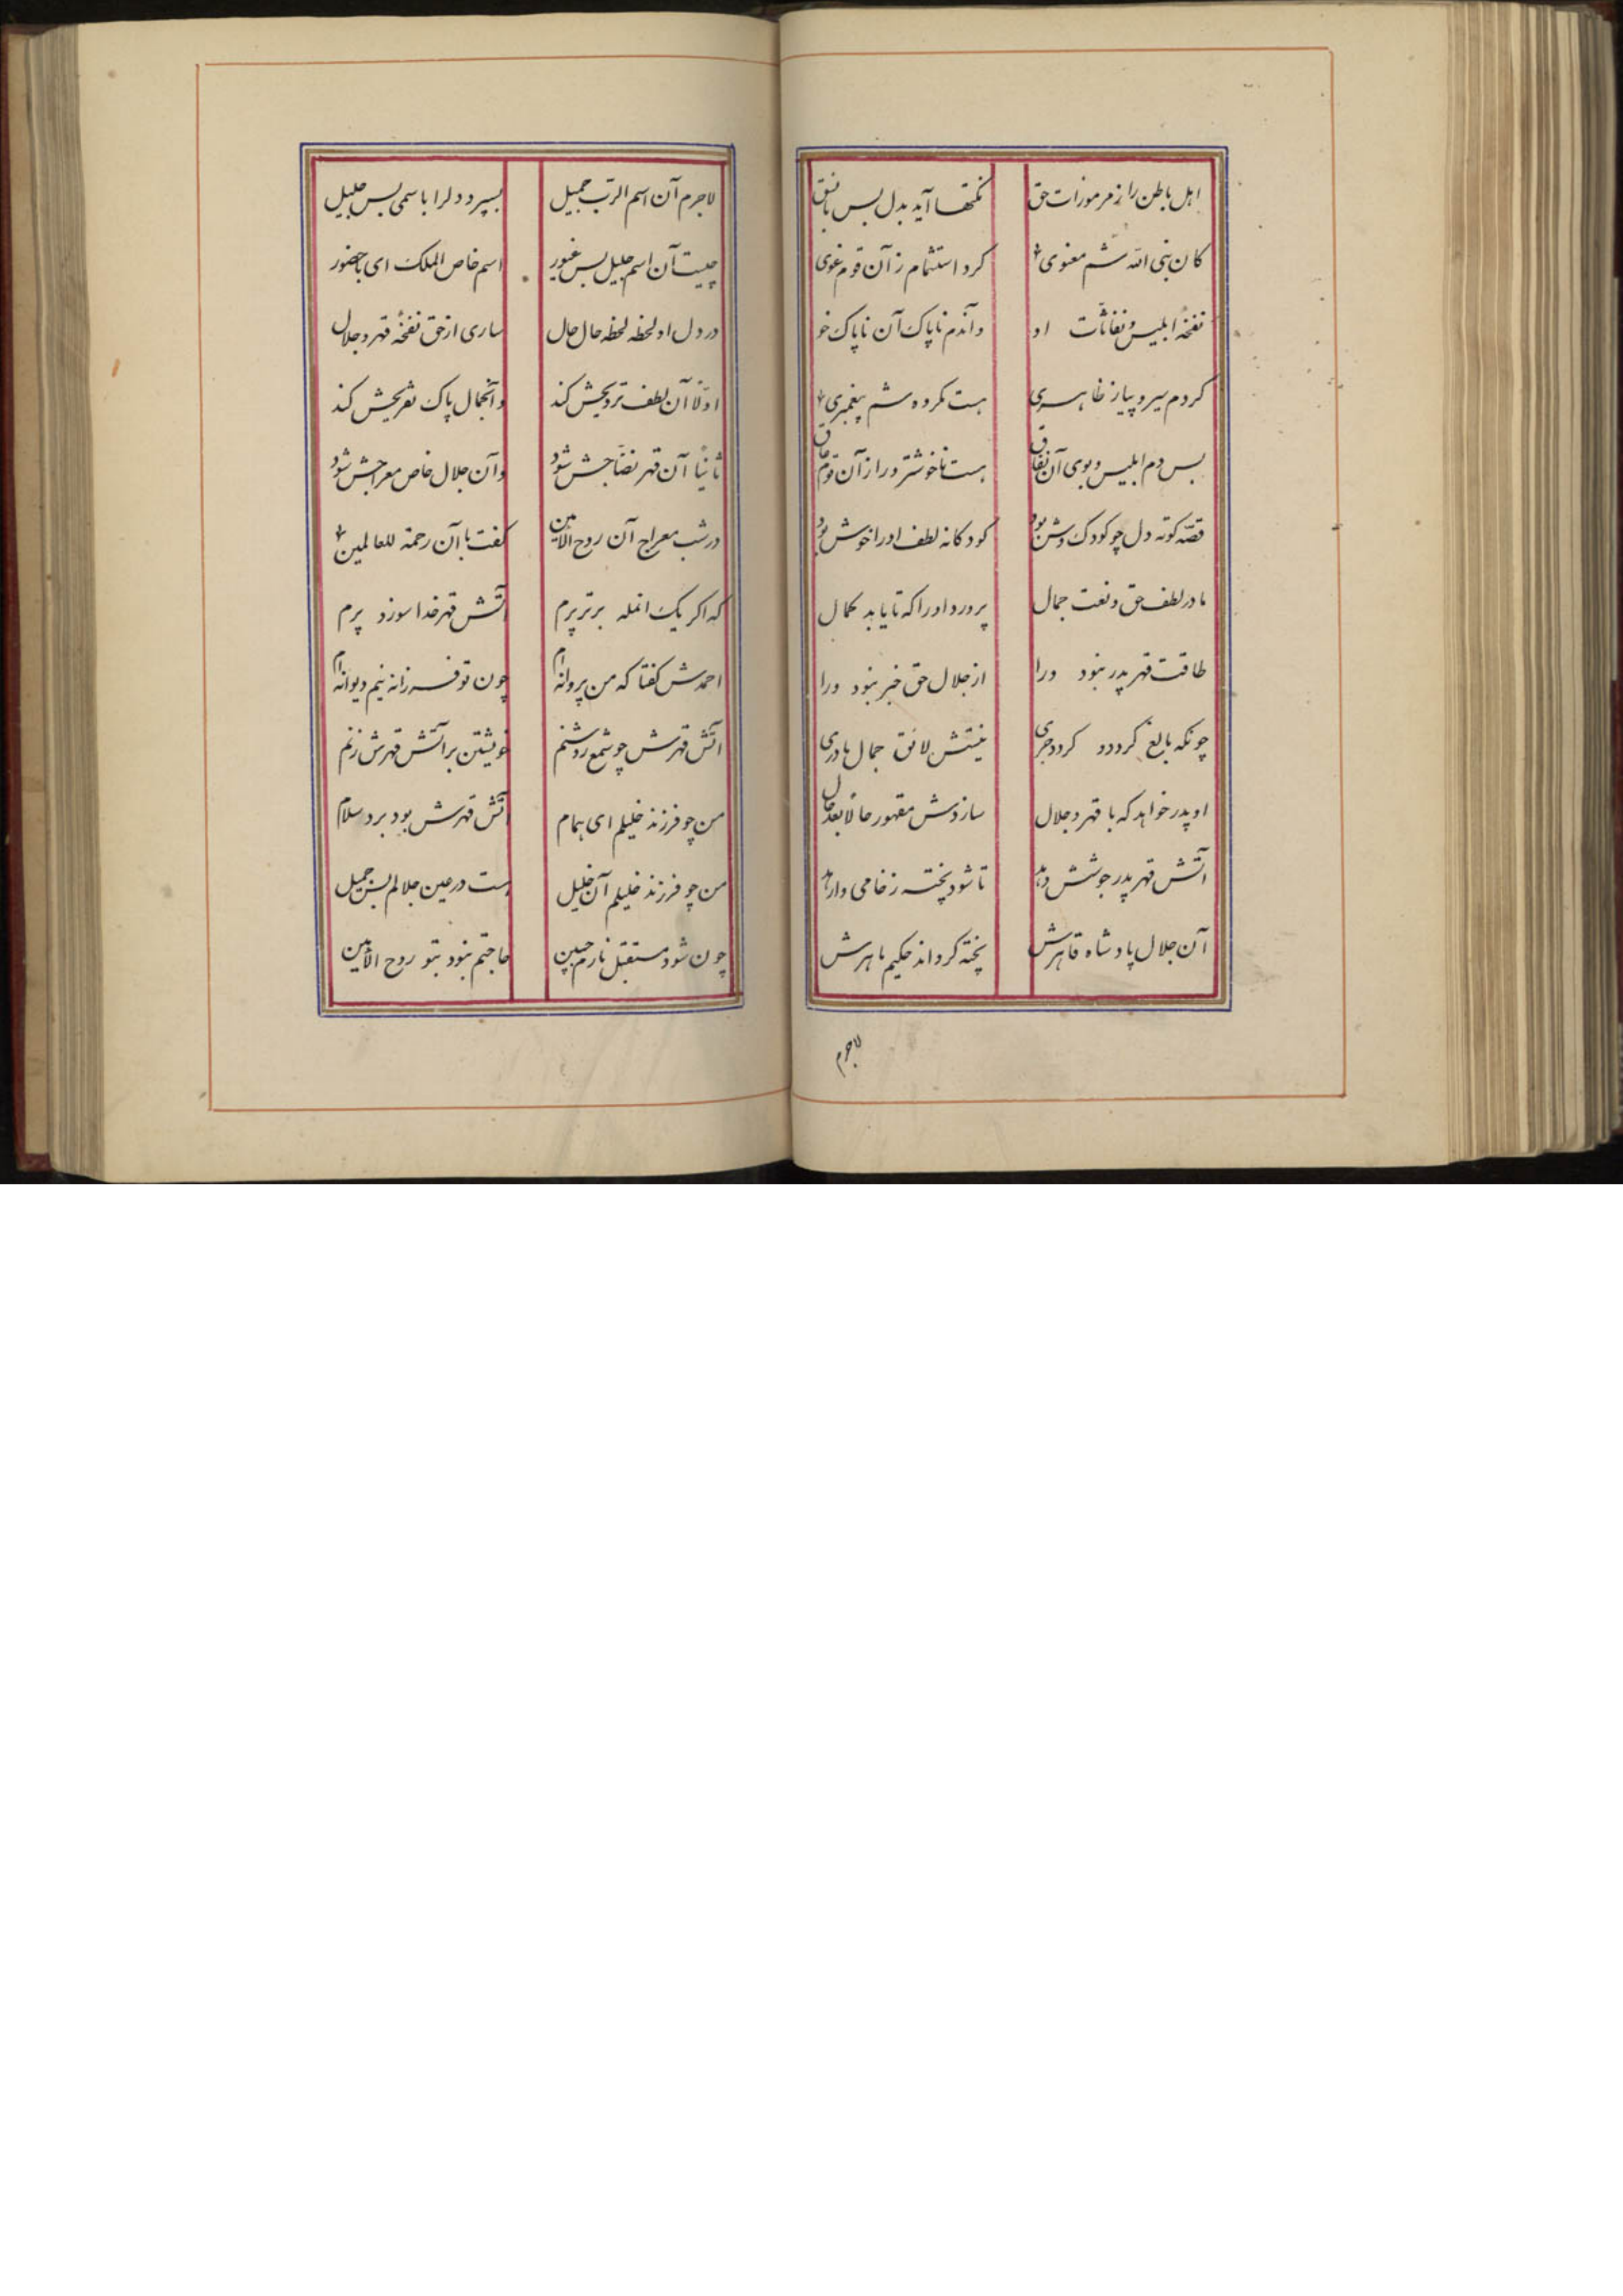 اهل باطن را ز مرموزات حق نکتها آید بدل بس با نسق
کان نبی الله شم معنوی کرد استشمام ز آن قوم غوی
نفخهٔ ابلیس و نفاثات او و آندم ناپاک آن ناپاک خو
کردم سیر و پیاز ظاهری هست مکروه شم پیغمبری
پس دم ابلیس و بوی آن نفاق هست ناخوشتر ورا از آن قوم
قصّه کوته دل چو کودک وش بود کودکانه لطف او را خوش بود
مادر لطف حق و نعت جمال پرورد او را که تا یابد کمال
طاقت قهر پدر نبود ورا از جلال حق خبر نبود ورا
چونکه بالغ گردد و گردد جری نیستش لائق جمال مادری
او پدر خواهد که با قهر و جلال سازدش مقهور حالا بعد حال
آتش قهر پدر جوشش دهد تا شود پخته ز خامی وارهد
آن جلال پادشاه قاهرش پخته گرداند حکیم ماهرش
لاجرم
لاجرم آن اسم الرّب جمیل بسپرد دلرا با سمی بس جلیل
چیست آن اسم جلیل بس غیور اسم خاص الملک ای با حضور
در دل او لحظه لحظه حال حال ساری از حق نفخهٔ قهر و جلال
اولّا آن لطف ترویحش کند و آنجمال پاک تفریحش کند
ثانیاً آن قهر نضّاجش شود وآن جلال خاص معراجش شود
در شب معراج آن روح الامین گفت با آن رحمة للعالمین
که اگر یک انمله برتر پرم آتش قهر خدا سوزد پرم
احمدش گفتا که من پروانه‌ام چون تو فرزانه نیم دیوانه‌ام
آتش قهرش چو شمع روشنم خویشتن بر آتش قهرش زنم
من چو فرزند خلیلم ای همام آتش قهرش بود برد و سلام
من چو فرزند خلیلم آن خلیل هست در عین جلالم بس جمیل
چون شود مستقبل نارم جبین حاجتم نبود بتو روح الامین